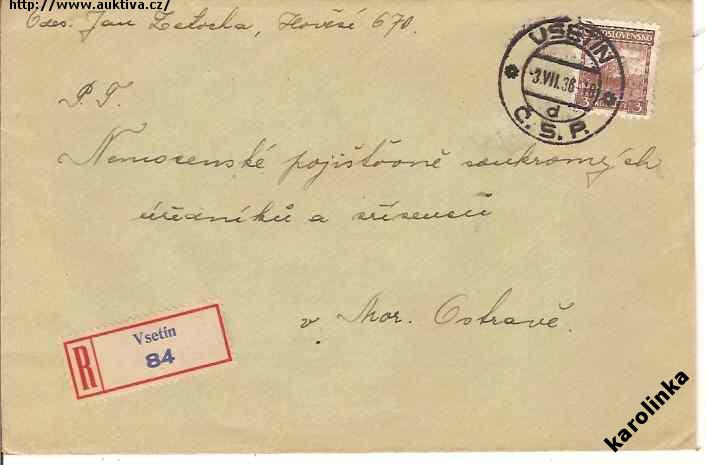 http://www.auktiva.cz/
Odes. Jan Zetocha, Hovězí 670.
VSETIN
-3.VII.36-
d
Č.S.P.
3 3
P. T.
Nemocenské pojišťovně soukromých
úředníků a zřízenců
v Mor. Ostravě.
R
Vsetín
84
karolinka